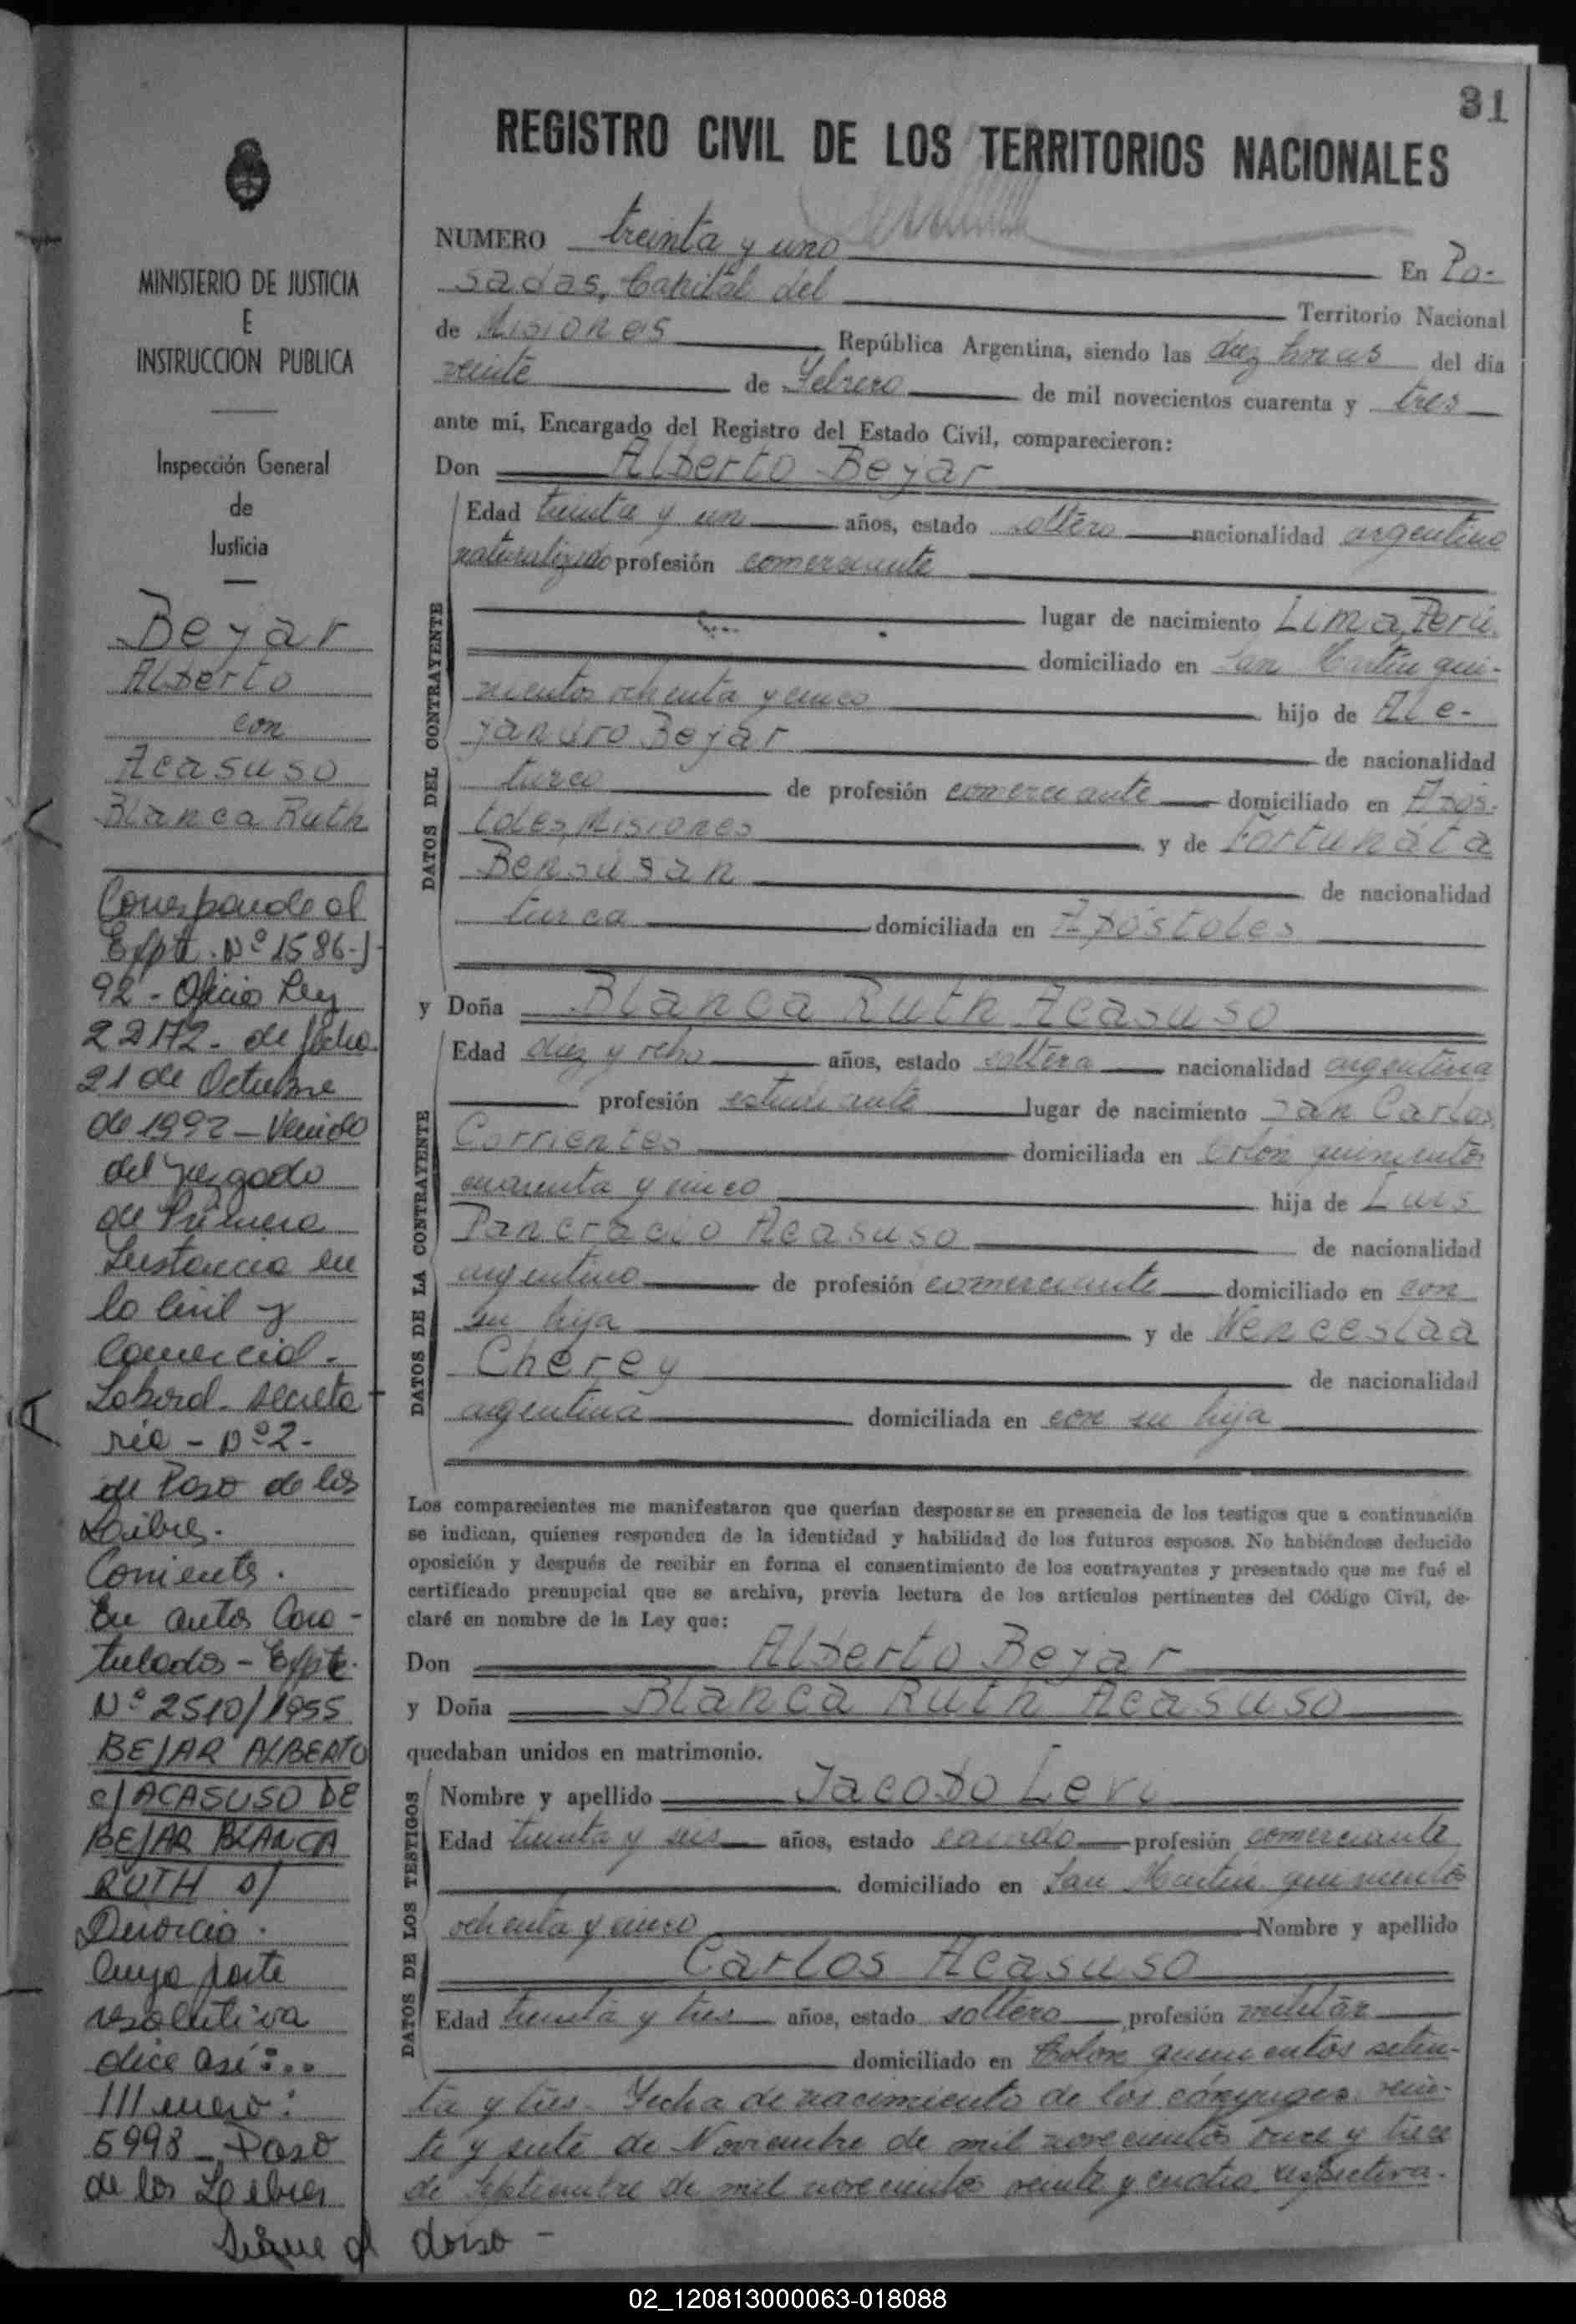 31
REGISTRO CIVIL DE LOS TERRITORIOS NACIONALES
MINISTERIO DE JUSTICIA
E
INSTRUCCIÓN PUBLICA
Inspección General
de
Justicia
Bejar
Alberto
con
Acasuso
Blanca Ruth
Corresponde al
Expte. Nº 1586-J-
92 - Oficio Ley
22172 - de fecha
21 de Octubre
de 1992 - Venido
del Juzgado
de Primera
Instancia en
lo Civil y
Comercial -
Laboral - secreta
ria - Nº 2 -
de Paso de los
Libres.
Corrientes.
En autos Cara-
tulados - Expte.
Nº 2510/1955
BEJAR ALBERTO
c/ ACASUSO DE
BEJAR BLANCA
RUTH s/
Divorcio.
Cuya parte
resolutiva
dice así:..
/// mero:
5998 - Paso
de los Libres
Sigue al dorso -
NUMERO treinta y uno En Po-
sadas, Capital del Territorio Nacional
de Misiones República Argentina, siendo las diez horas del día
veinte de Febrero de mil novecientos cuarenta y tres
ante mí, Encargado del Registro del Estado Civil, comparecieron:
Don Alberto Bejar
DATOS DEL CONTRAYENTE
Edad treinta y un años, estado soltero nacionalidad argentino
naturalizado profesión comerciante
lugar de nacimiento Lima, Perú.
domiciliado en San Martín qui-
nientos ochenta y cinco hijo de Ale-
jandro Bejar de nacionalidad
turco de profesión comerciante domiciliado en Após-
toles, Misiones y de Fortunata
Bensusan de nacionalidad
turca domiciliada en Apóstoles
y Doña Blanca Ruth Acasuso
DATOS DE LA CONTRAYENTE
Edad diez y ocho años, estado soltera nacionalidad argentina
profesión estudiante lugar de nacimiento San Carlos,
Corrientes domiciliada en Colón quinientos
cuarenta y cinco hija de Luis
Pancracio Acasuso de nacionalidad
argentino de profesión comerciante domiciliado en con
su hija y de Venceslaa
Cherey de nacionalidad
argentina domiciliada en con su hija
Los comparecientes me manifestaron que querían desposarse en presencia de los testigos que a continuación
se indican, quienes responden de la identidad y habilidad de los futuros esposos. No habiéndose deducido
oposición y después de recibir en forma el consentimiento de los contrayentes y presentado que me fué el
certificado prenupcial que se archiva, previa lectura de los artículos pertinentes del Código Civil, de-
claré en nombre de la Ley que:
Don Alberto Bejar
y Doña Blanca Ruth Acasuso
quedaban unidos en matrimonio.
DATOS DE LOS TESTIGOS
Nombre y apellido Jacobo Levi
Edad treinta y seis años, estado casado profesión comerciante
domiciliado en San Martín quinientos
ochenta y cinco Nombre y apellido
Carlos Acasuso
Edad treinta y tres años, estado soltero profesión militar
domiciliado en Colón quinientos seten-
ta y tres. Fecha de nacimiento de los cónyuges: vein-
te y siete de Noviembre de mil novecientos once y trece
de Septiembre de mil novecientos veinte y cuatro, respectiva-
02_120813000063-018088